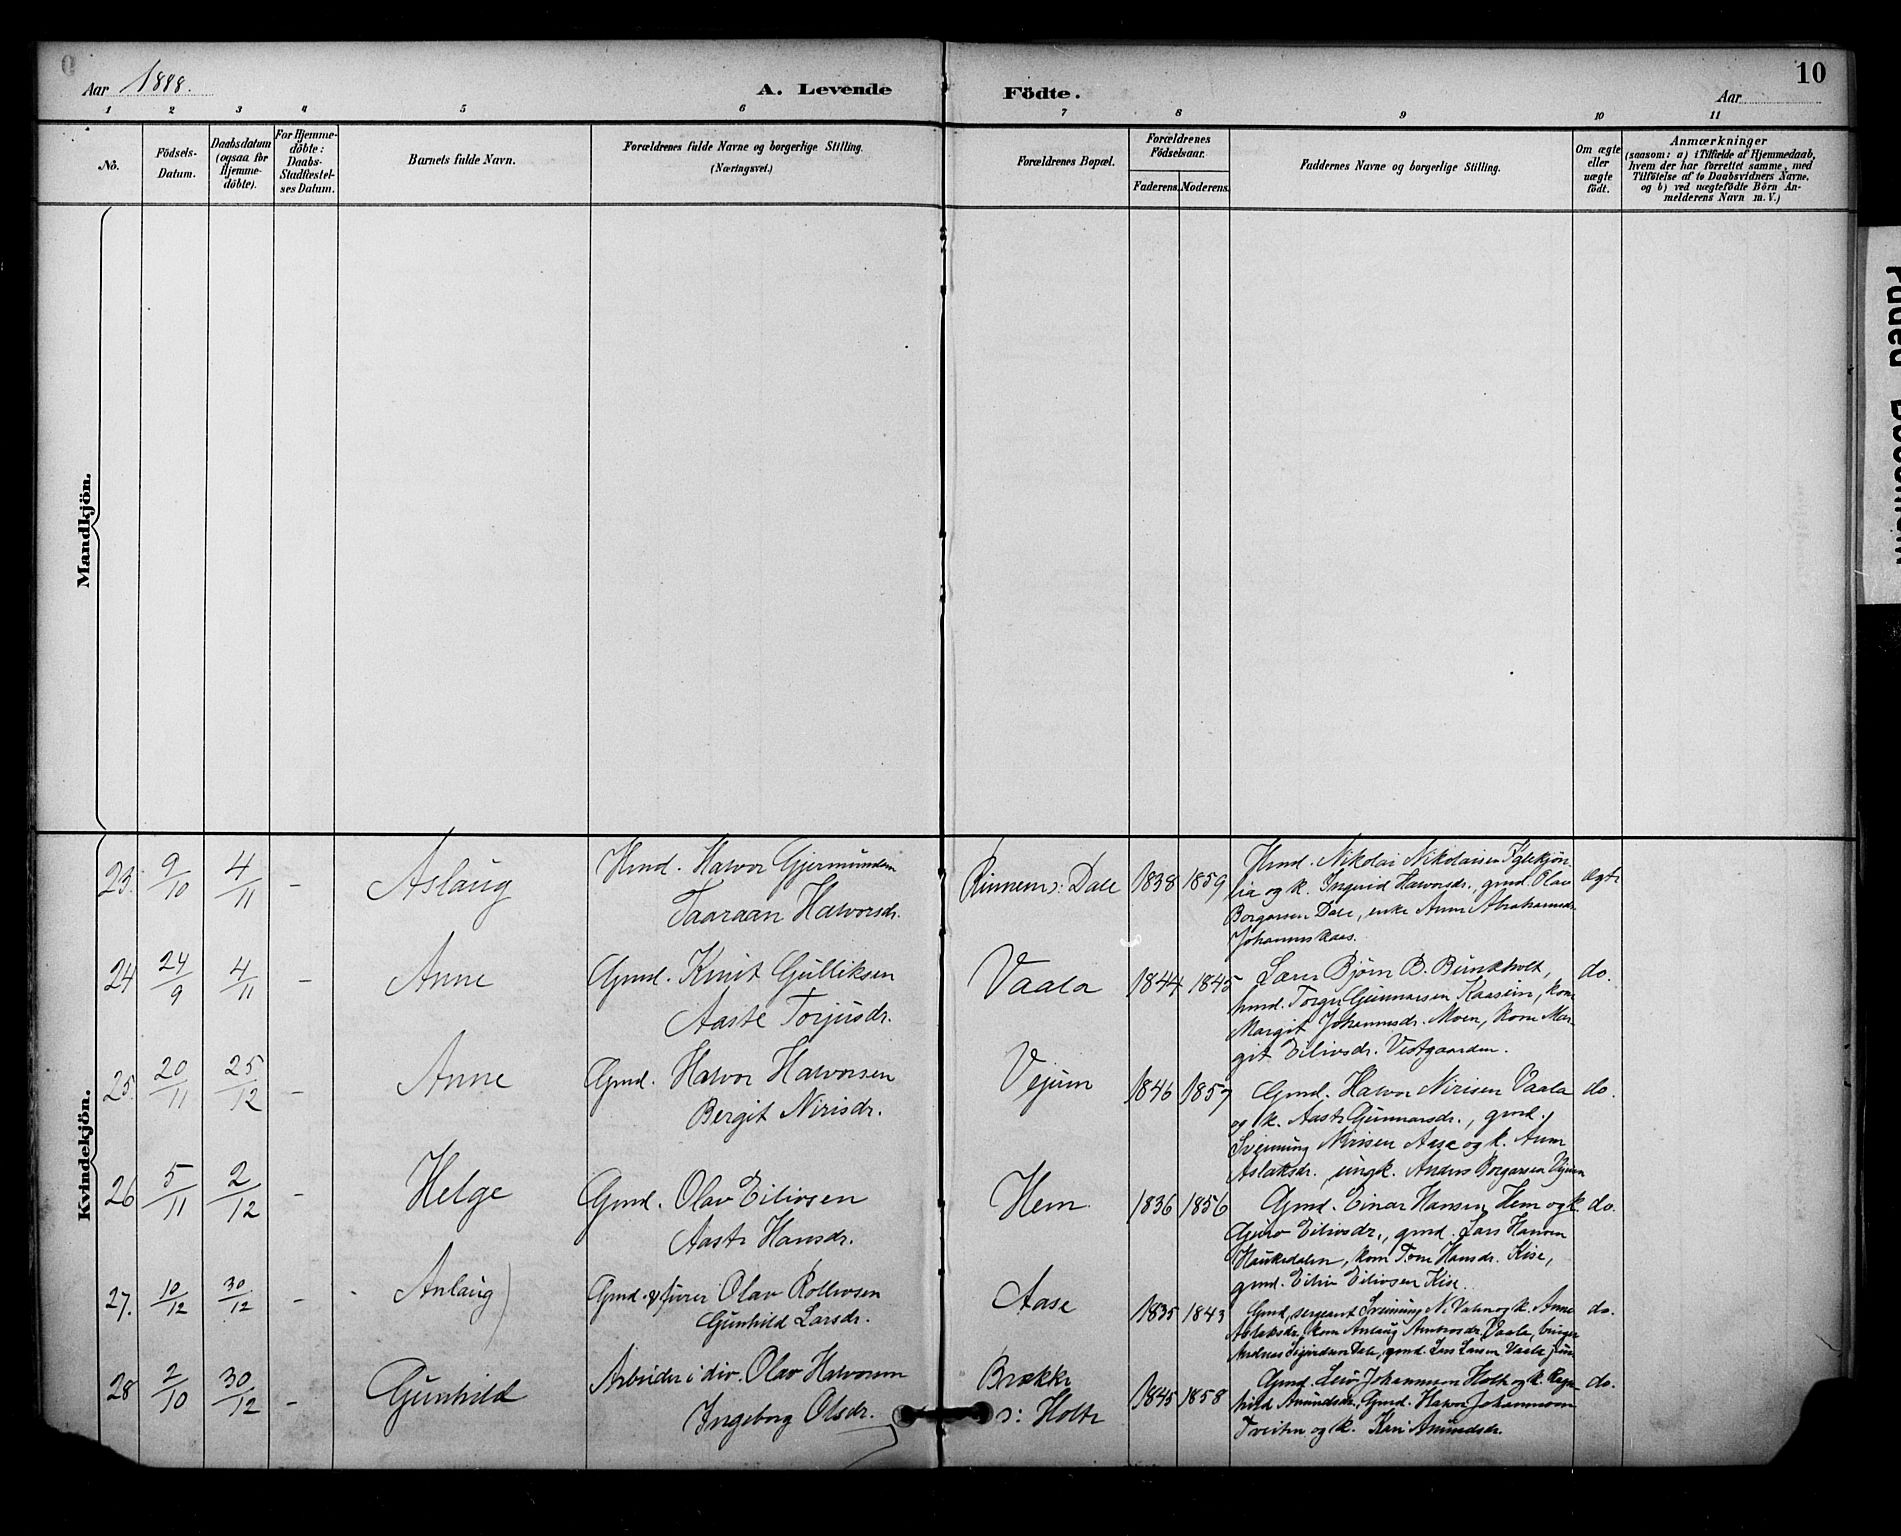 Aar 1888.
A. Levende Födte.
10
Aar
1 2 3 4 5 6 7 8 9 10 11
No.
Födsels-Datum.
Daabsdatum (ogsaa for Hjemme-döbte).
For Hjemme-döbte: Daabs-Stadfæstel-ses Datum.
Barnets fulde Navn.
Forældrenes fulde Navne og borgerlige Stilling.
(Næringsvei.)
Forældrenes Bopæl.
Forældrenes Födselsaar.
Faderens. Moderens.
Faddernes Navne og borgerlige Stilling.
Om ægte eller uægte födt.
Anmærkninger
(saasom: a) i Tilfælde af Hjemmedaab,
hvem der har forrettet samme, med
Tilföielse af to Daabsvidners Navne,
og b) ved uægtefödte Börn An-
melderens Navn m. V.)
Mandkjön.
Kvindekjön.
23. 9/10 4/11 - Aslaug
Hmd. Halvor Gjermundsen
Taaraan Halvorsdr.
Rinnem s: Dale 1838 1859
Hmd. Nikolai Nikolaisen Iglekjøn-
lia og k. Ingerid Halvorsdr., gmd. Olav
Borgarsen Dale, enke Anne Abrahamsdr.
Johannskaas.
ægte
24 24/9 4/11 - Anne
Gmd. Knut Gulliksen
Aaste Torjusdr.
Vaala 1844 1845
Lærer Bjørn B. Bunkholt,
hmd. Torger Gunnarsen Kaasein, kone
Margit Johannesdr. Moen, kone Mar-
git Eilivsdr. Vestgaarden.
do.
25. 20/11 25/12 - Anne
Gmd. Halvor Halvorsen
Bergit Nirisdr.
Vejum 1846 1857
Gmd. Halvor Nirisen Vaala
og k. Aaste Gunnarsdr., gmd.
Sveinung Nirisen Aase og k. Anne
Aslaksdr., ungk. Anders Borgarsen Vejum
do.
26 5/11 2/12 - Helge
Gmd. Olav Eilivsen
Aaste Hansdr.
Hem 1836 1856
Gmd. Einar Hansen Hem og k.
Gjero Eilivsdr., gmd. Lars Hansen
Haukedalen, kone Tone Hansdr. Kise,
gmd. Eiliv Eilivsen Kise.
do.
27. 10/12 30/12 - Anlaug
Gmd. &amp; furer Olav Rollevsen
Gunhild Larsdr.
Aase 1835 1843
Gmd, sergeant Sveinung N. Valen og k. Anne
Aslaksdr, kone Anlaug Ambrosdr. Vaala,
Andreas Sigurdsen Dale, gmd. Lars Larsen Vaala
do.
28 2/10 30/12 - Gunhild
Arbeider i div. Olav Halvorsen
Ingeborg Olsdr.
Brække
s: Holte 1845 1858
Gmd. Leiv Johannesen Holte og k. Ragn-
hild Amundsdr, Gmd. Halvor Johannesen
Tveiten og k. Kari Amundsdr.
do.